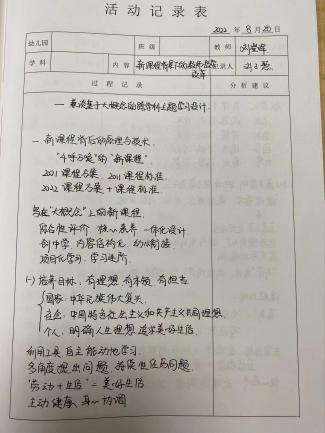 活动记录表
2022 年 8 月 25 日
幼儿园 班级 教师
学科 内容 新课程背景下的教师 改革 记录人
过程记录 分析建议
一兼谈基于大概念的跨学科主题学习设计.
一. 新课程背后的原理与技术
"新课程".
2001 课程方案. 2011 课程标准
2022 课程方案 + 课程标准
"大概念" 上的新课程.
综合性评价 核心素养 一体化设计
内容结构化 幼小衔接
项目化学习. 学习进阶.
(一) 培养目标: 有理想 有本领 有担当
国家: 中华民族伟大复兴.
社会: 中国特色社会主义和共产主义共同理想.
个人: 明确人生理想 追求美好生活.
利用工具 自主能动地学习.
多角度提出问题
"劳动 + 生活" = 美好生活
主动健康 身心协调